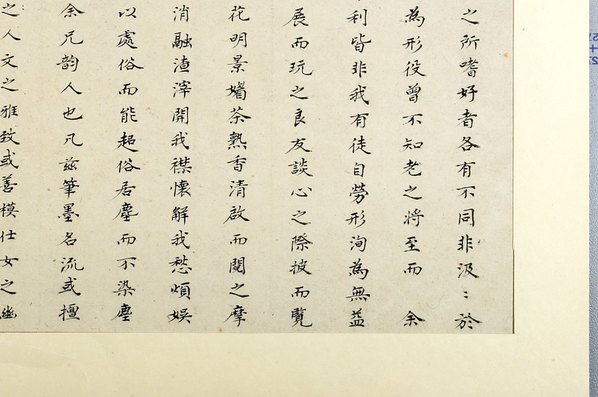 之所嗜好者各有不同非汲〻於
為形役曾不知老之將至而 余
利皆非我有徒自勞形洵為無益
展而玩之良友談心之際披而覽
花明景媚茶熟香清啟而閱之摩
消融渣滓開我襟懷解我愁煩娛
以處俗而能超俗居塵而不染塵
余兄韵人也凡茲筆墨名流或擅
之人文之雅致或善模仕女之幽